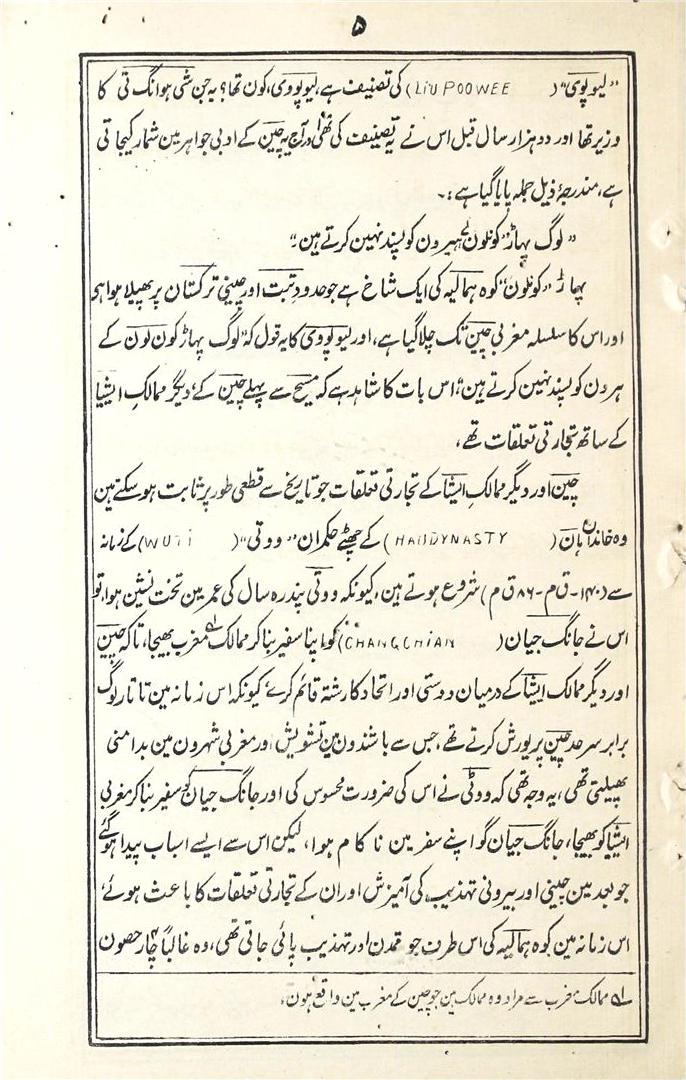 ۵
”لیو پووی“ (LiU POOWEE) کی تصنیف ہے، لیو پووی، کون تھا؟ یہ چن شی ہوانگ تی کا
وزیر تھا اور دو ہزار سال قبل اس نے یہ تصنیف کی تھی اور آج یہ چین کے ادبی جواہر مین شمار کیجاتی
ہے، مندرجۂ ذیل جملہ پایا گیا ہے:۔
”لوگ پہاڑ ”کونلون“ کے ہیرون کو پسند نہین کرتے ہین“
پہاڑ ”کونلون“ کوہ ہمالیہ کی ایک شاخ ہے جو حدود تبت اور چینی ترکستان پر پھیلا ہوا ہی
اور اس کا سلسلہ مغربی چین تک چلا گیا ہے، اور لیو پووی کا یہ قول کہ ”لوگ پہاڑ کون لون کے
ہیرون کو پسند نہین کرتے ہین“، اس بات کا شاہد ہے کہ مسیح سے پہلے چین کے دیگر ممالک ایشیا
کے ساتھ تجارتی تعلقات تھے،
چین اور دیگر ممالک ایشیا کے تجارتی تعلقات جو تاریخ سے قطعی طور پر ثابت ہو سکتے ہین
وہ خاندان ہان (HANDYNASTY) کے چھٹے حکمران ”ووتی“ (WUTi) کے زمانہ
سے (۱۴۰ ق م - ۸۶ ق م) شروع ہوتے ہین، کیونکہ ووتی پندرہ سال کی عمر مین تخت نشین ہوا، تو
اس نے جانگ جیان (CHANGCHiAN) کو اپنا سفیر بنا کر ممالک مغرب ؎۱ بھیجا، تاکہ چین
اور دیگر ممالک ایشیا کے درمیان دوستی اور اتحاد کا رشتہ قائم کرے، کیونکہ اس زمانہ مین تاتار لوگ
برابر سرحد چین پر یورش کرتے تھے، جس سے باشندون مین تشویش اور مغربی شہرون مین بدامنی
پھیلتی تھی، یہ وجہ تھی کہ ووتی نے اس کی ضرورت محسوس کی اور جانگ جیان کو سفیر بنا کر مغربی
ایشیا کو بھیجا، جانگ جیان گو اپنے سفر مین ناکام ہوا، لیکن اس سے ایسے اسباب پیدا ہو گئے
جو بعد مین چینی اور بیرونی تہذیب کی آمیزش اور ان کے تجارتی تعلقات کا باعث ہوئے،
اس زمانہ مین کوہ ہمالیہ کی اس طرف جو تمدن اور تہذیب پائی جاتی تھی، وہ غالباً چار حصون
؎۱ ممالک مغرب سے مراد وہ ممالک ہین جو چین کے مغرب مین واقع ہون،